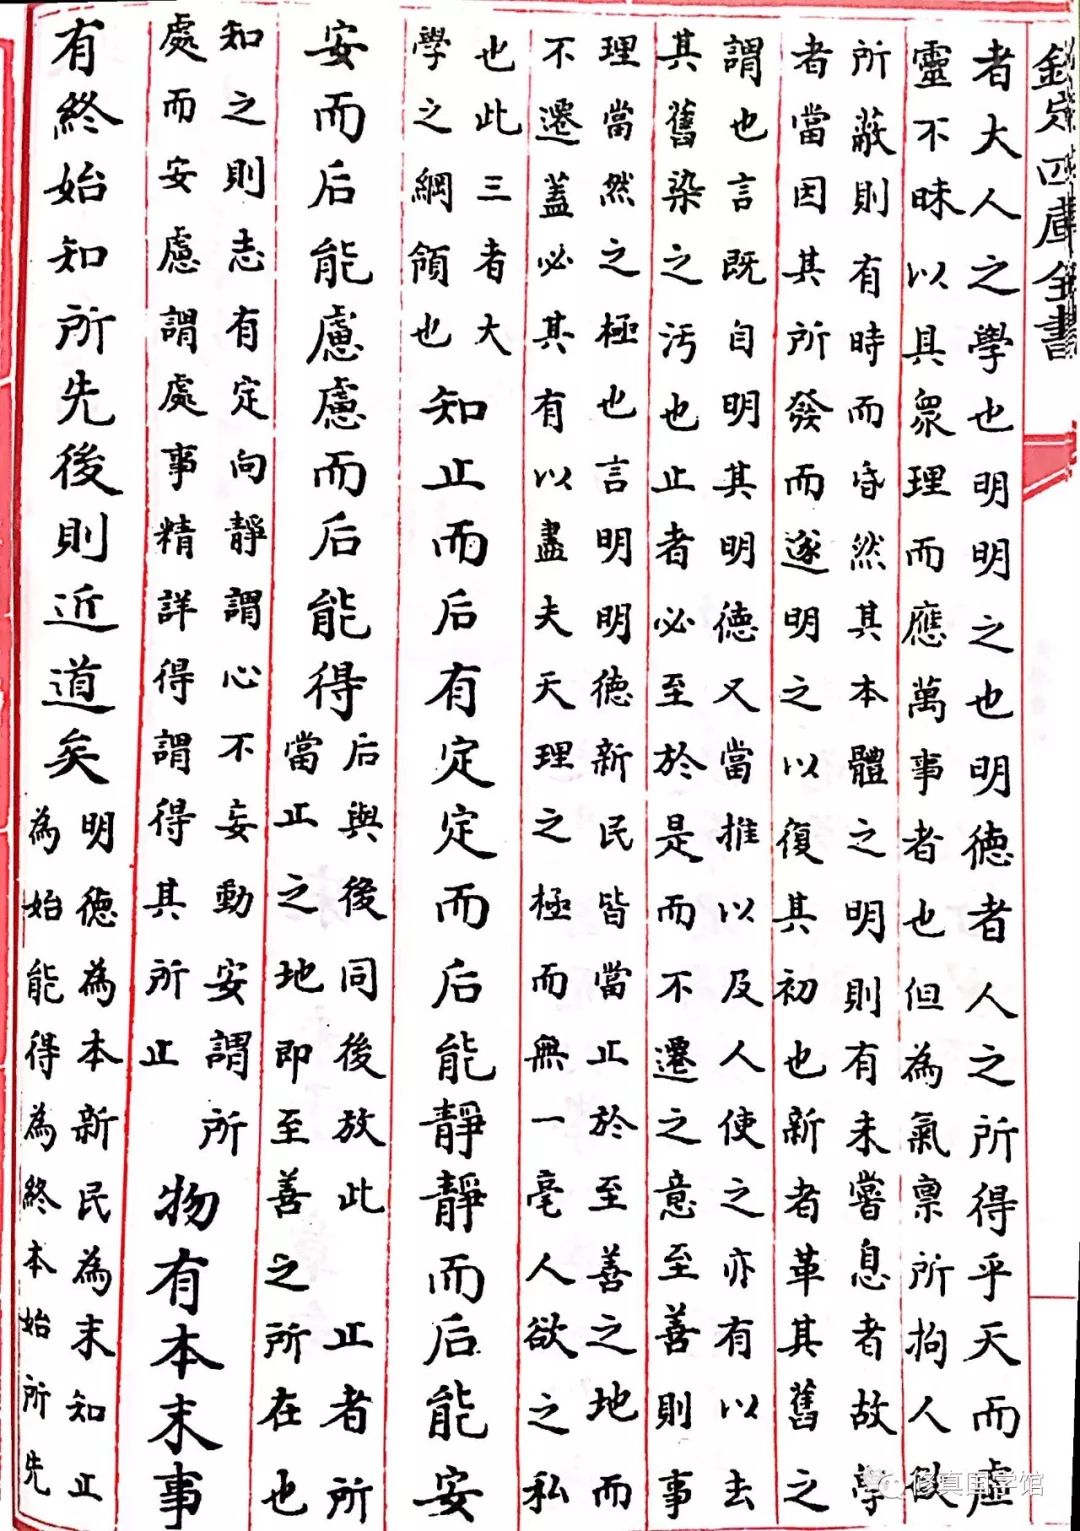 欽定四庫全書
者大人之學也明明之也明德者人之所得乎天而虛
靈不昧以具眾理而應萬事者也但為氣禀所拘人欲
所蔽則有時而昏然其本體之明則有未嘗息者故學
者當因其所發而遂明之以復其初也新者革其舊之
謂也言既自明其明德又當推以及人使之亦有以去
其舊染之汚也止者必至於是而不遷之意至善則事
理當然之極也言明明德新民皆當止於至善之地而
不遷蓋必其有以盡夫天理之極而無一毫人欲之私
也此三者大
學之綱領也
知止而后有定定而后能靜靜而后能安
安而后能慮慮而后能得
后與後同後放此 止者所
當止之地即至善之所在也
知之則志有定向靜謂心不妄動安謂所
處而安慮謂處事精詳得謂得其所止
物有本末事
有終始知所先後則近道矣
明德為本新民為末知止
為始能得為終本始所先
修真国学馆